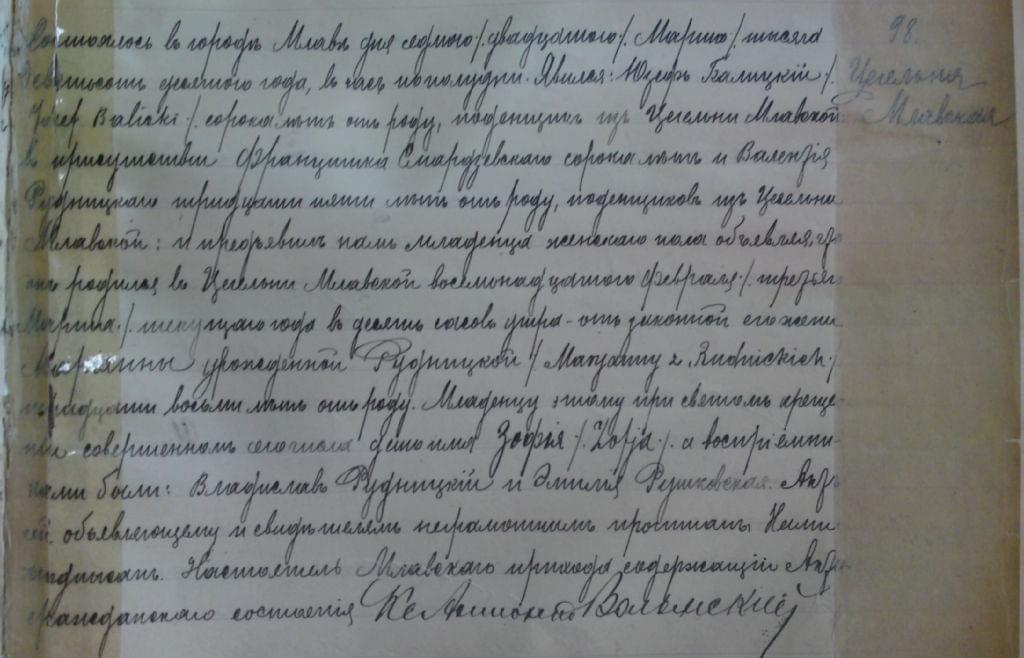 98.
Цегельня
Млавская
Состоялось въ городѣ Млавѣ дня седмого /. двадцатого /. Марта /. тысяча
девятьсотъ десятого года, въ часъ пополудни. Явился: Юзефъ Балицкій /.
Józef Balicki /. сорока лѣтъ отъ роду, поденщикъ изъ Цегельни Млавской
въ присутствіи Францишка сорока лѣтъ и
Рудницкаго тридцати пяти лѣтъ отъ роду, поденщиковъ изъ Цегельни
Млавской: и предъявилъ намъ младенца женскаго пола объявляя, что
онъ родился въ Цегельни Млавской восемнадцатого Февраля /. третьяго
Марта /. текущаго года въ десять часовъ утра - отъ законной его жены
Марянны урожденной Рудницкой /. Maryanny z Rudnickich /.
тридцати восьми лѣтъ отъ роду. Младенцу этому при святомъ креще-
ніи совершенномъ сего числа дано имя Зофія /. Zofja /. а воспріемни-
ками были: Владиславъ Рудницкій и Эмилія Рутковская. Актъ
сей объявляющему и свидѣтелямъ неграмотнымъ прочитанъ Нами
подписанъ. Настоятель Млавскаго прихода содержащій Акты
гражданскаго состоянія Кс